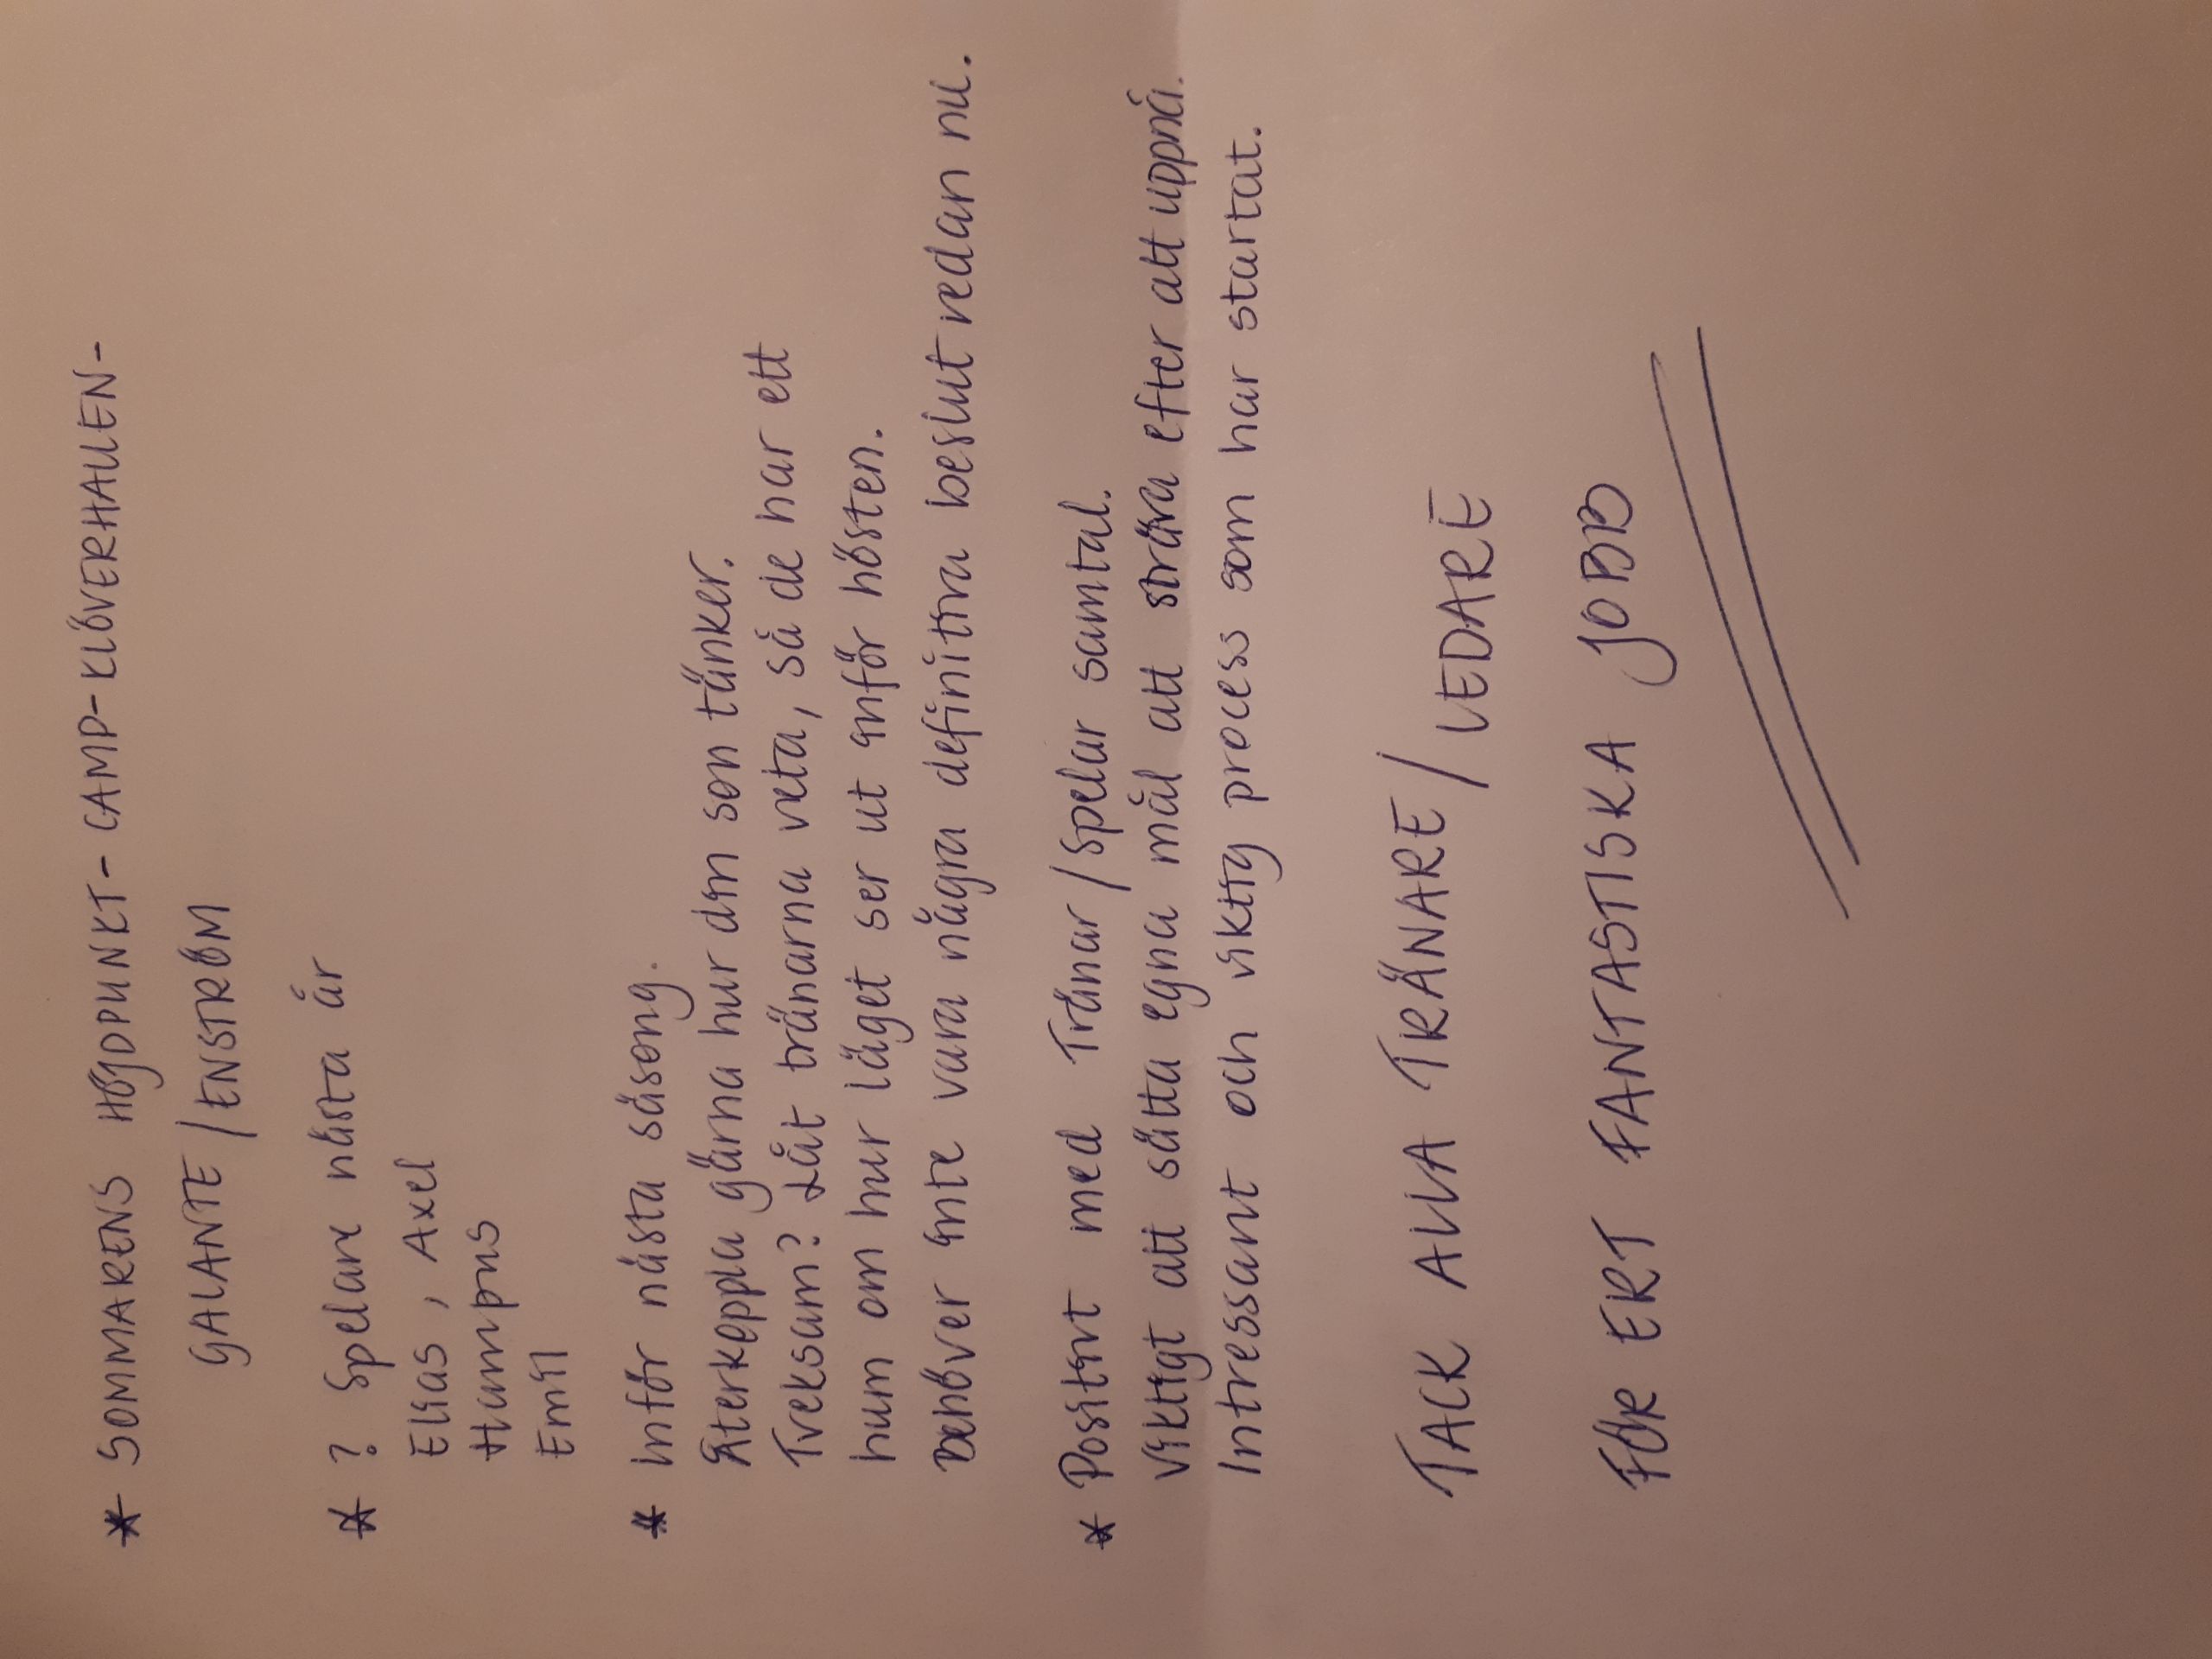 * SOMMARENS HÖJDPUNKT - CAMP - KLÖVERHALLEN -
GALANTE / ENSTRÖM
* ? Spelare nästa år
Elias, Axel
Hampus
Emil
* Inför nästa säsong.
Återkoppla gärna hur din son tänker.
Tveksam? Låt tränarna veta, så de har ett
hum om hur läget ser ut inför hösten.
Behöver inte vara några definitiva beslut redan nu.
* Positivt med Tränar/Spelar samtal.
Viktigt att sätta egna mål att sträva efter att uppnå.
Intressant och viktig process som har startat.
TACK ALLA TRÄNARE / LEDARE
FÖR ERT FANTASTISKA JOBB